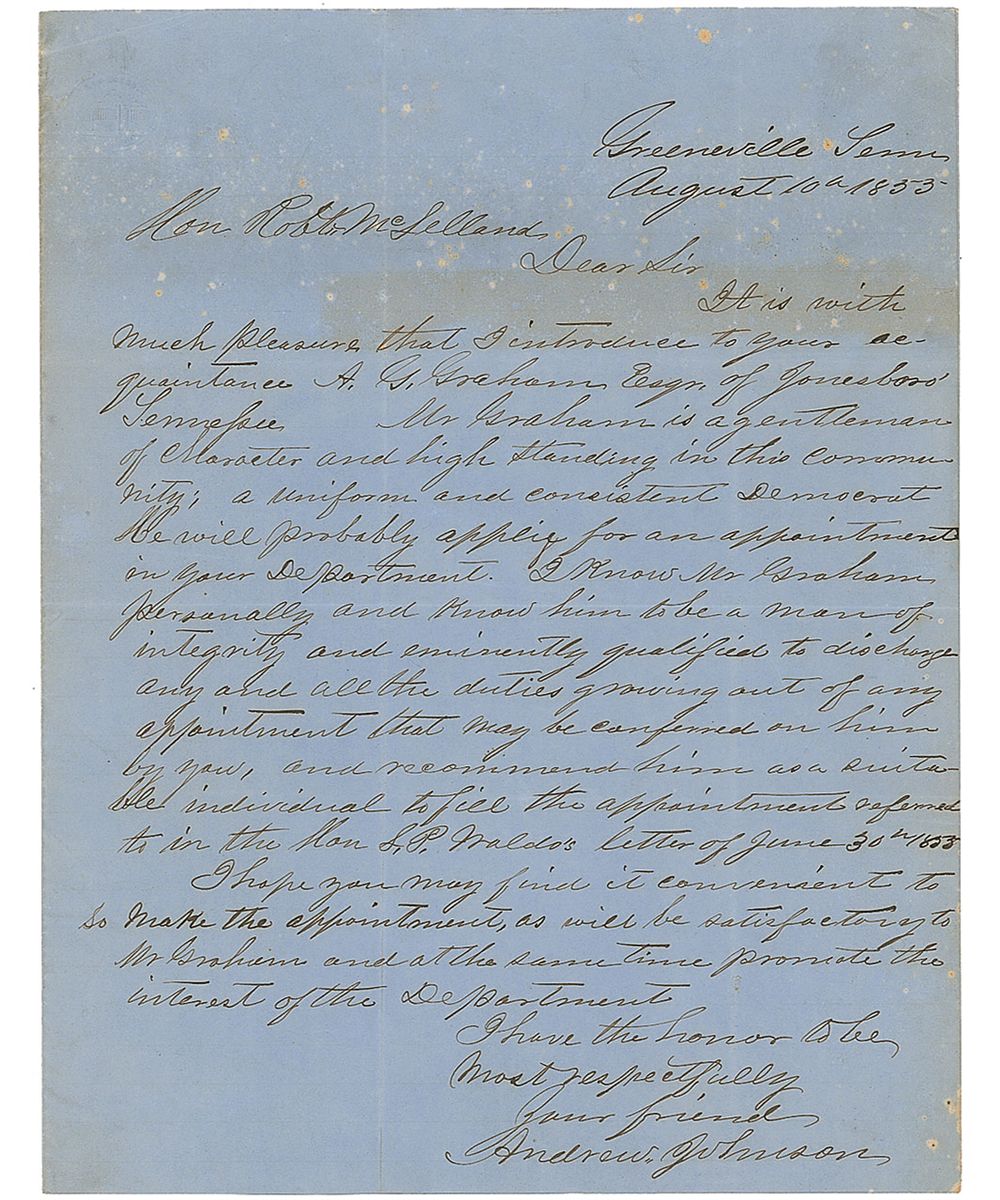 Greeneville Tenn
August 10th 1855
Hon. Robt McLelland
Dear Sir
It is with
much pleasure that I introduce to your ac-
quaintance A. G. Graham Esqr. of Jonesboro'
Tennessee Mr Graham is a gentleman
of Character and high standing in this commu-
nity; a uniform and consistent Democrat
He will probably apply for an appointment
in your Department. I know Mr Graham
personally and know him to be a man of
integrity and eminently qualified to discharge
any and all the duties growing out of any
appointment that may be conferred on him
by you, and recommend him as a suita-
ble individual to fill the appointment referred
to in the Hon L. P. Waldo's letter of June 30th
I hope you may find it convenient to
so make the appointment, as will be satisfactory to
Mr Graham and at the same time promote the
interest of the Department
I have the honor to be
Most respectfully
Your friend
Andrew Johnson